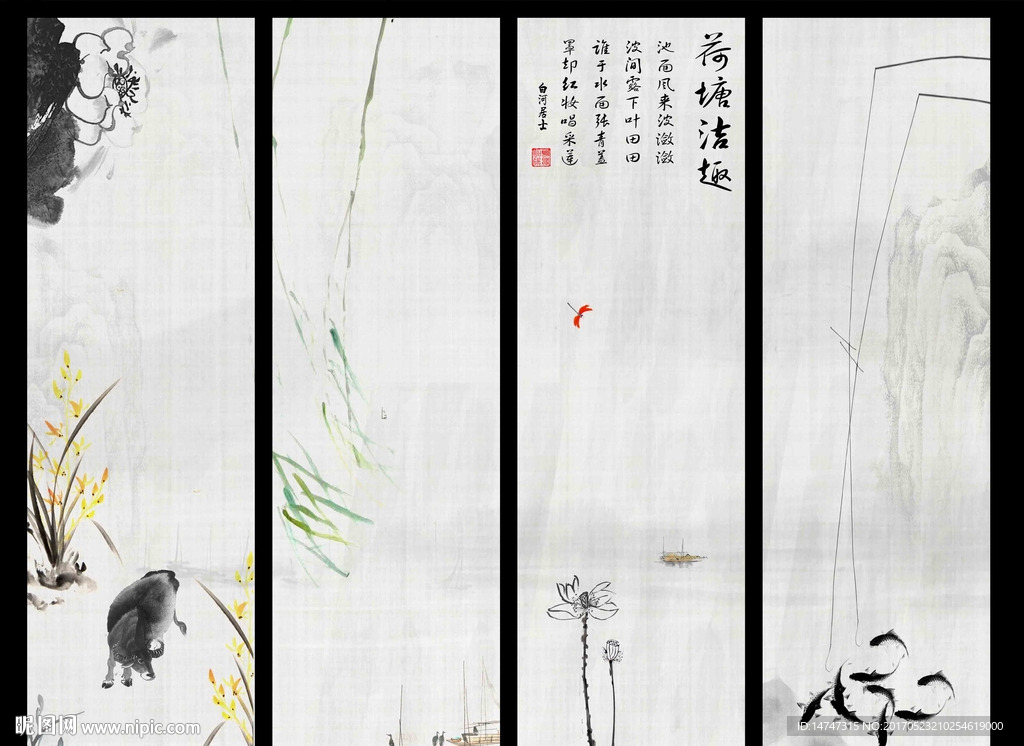 荷塘洁趣
池面风来波潋潋
波间露下叶田田
谁于水面张青盖
罩却红妆唱采莲
白河居士
昵图网 www.nipic.com
ID:14747315 NO:20170523210254619000